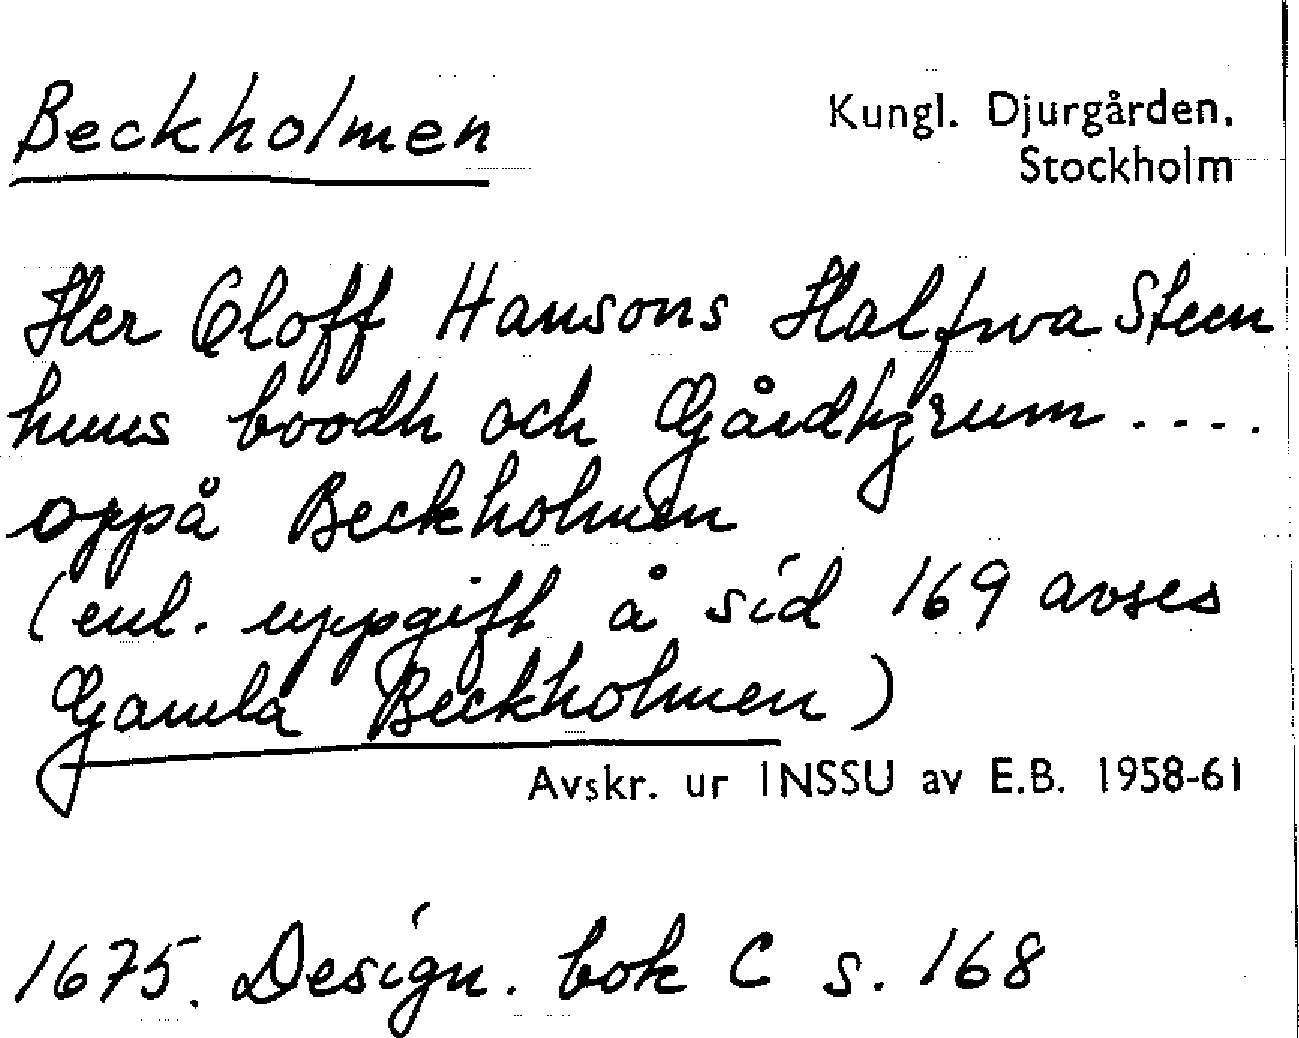 Beckholmen
Kungl. Djurgården.
Stockholm
Her Oloff Hansons Halfwa Steen
huus boodh och Gårdhzrum ....
oppå Beckholmen
(enl. uppgift å sid 169 avses
Gamla Beckholmen)
Avskr. ur INSSU av E.B. 1958-61
1675. Design. bok C s. 168